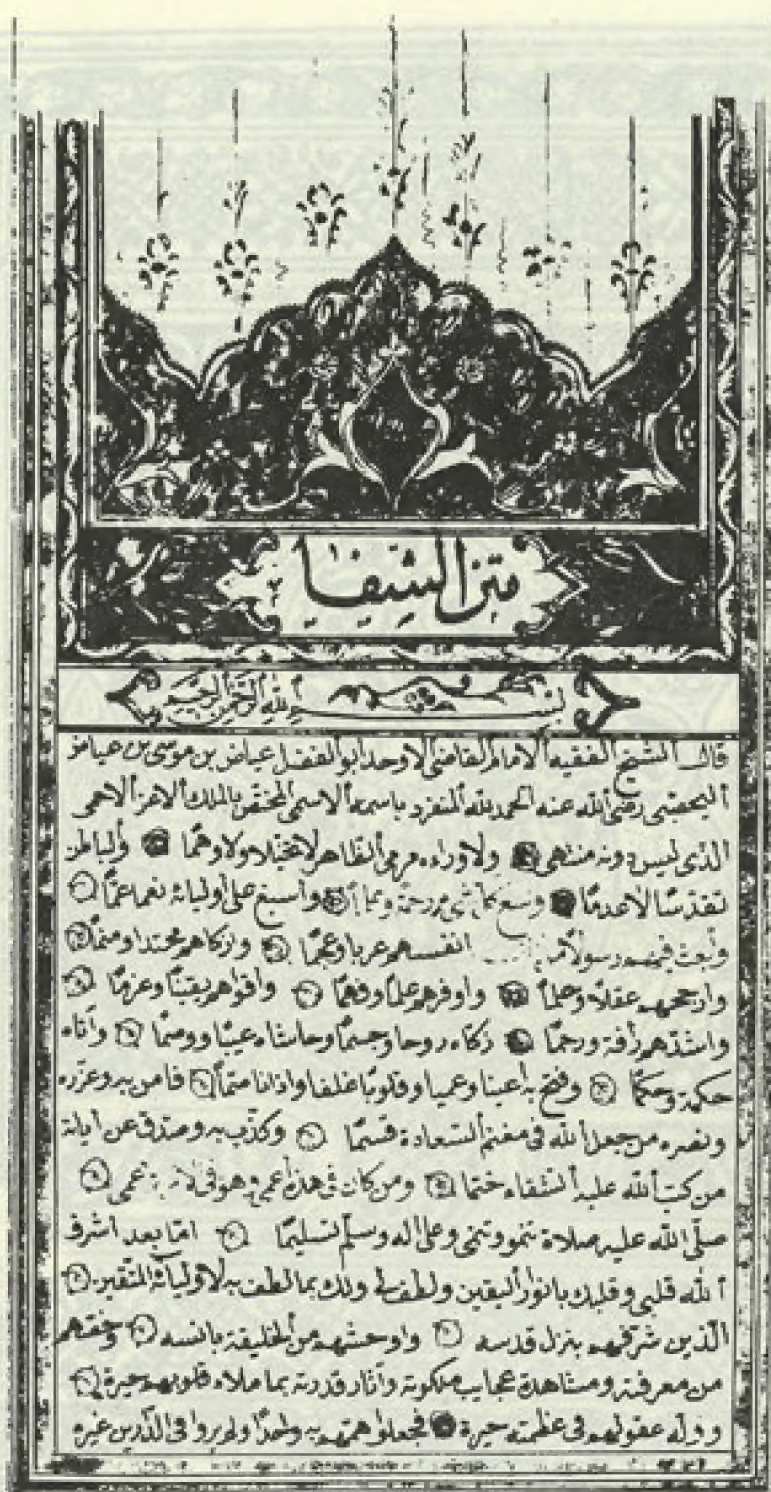 متن الشفا
بسم الله الرحمن الرحيم
قال الشيخ الفقيه الامام القاضى الاوحد ابو الفضل عياض بن موسى بن عياض
اليحصبى رضى الله عنه الحمد لله المنفرد باسمه الاسمى المختص بالملك الاعز الاحمى
الذى ليس دونه منتهى ولا وراءه مرمى الظاهر لا تخيلا ولا وهما والباطن
تقدسا لا عدما وسع كل شىء رحمة وعلما واسبغ على اوليائه نعما عما
وبعث فيهم رسولا من انفسهم عربا وعجما وازكاهم محتدا ومنما
وارجحهم عقلا وحلما واوفرهم علما وفهما واقواهم يقينا وعزما
واشدهم رأفة ورحما زكاه روحا وجسما وحاشاه عيبا ووصما وآتاه
حكمة وحكما وفتح به أعينا عميا وقلوبا غلفا واذانا صما فامن به وعزره
ونصره من جعل الله فى مغنم السعادة قسما وكذب به وصدف عن اياته
من كتب الله عليه الشقاء حتما ومن كان فى هذه أعمى فهو فى أعمى
صلى الله عليه صلاة تنمو وتنمى وعلى اله وسلم تسليما اما بعد اشرق
الله قلبى وقلبك بانوار اليقين ولطف لى ولك بما لطف به لاوليائه المتقين
الذين شرفهم بنزل قدسه واوحشهم من الخليقة بانسه وخصهم
من معرفته ومشاهدة عجايب ملكوته وآثار قدرته بما ملاء قلوبهم حبرة
ووله عقولهم فى عظمته حيرة فجعلوا همهم به واحدا ولم يروا فى الدارين غيره